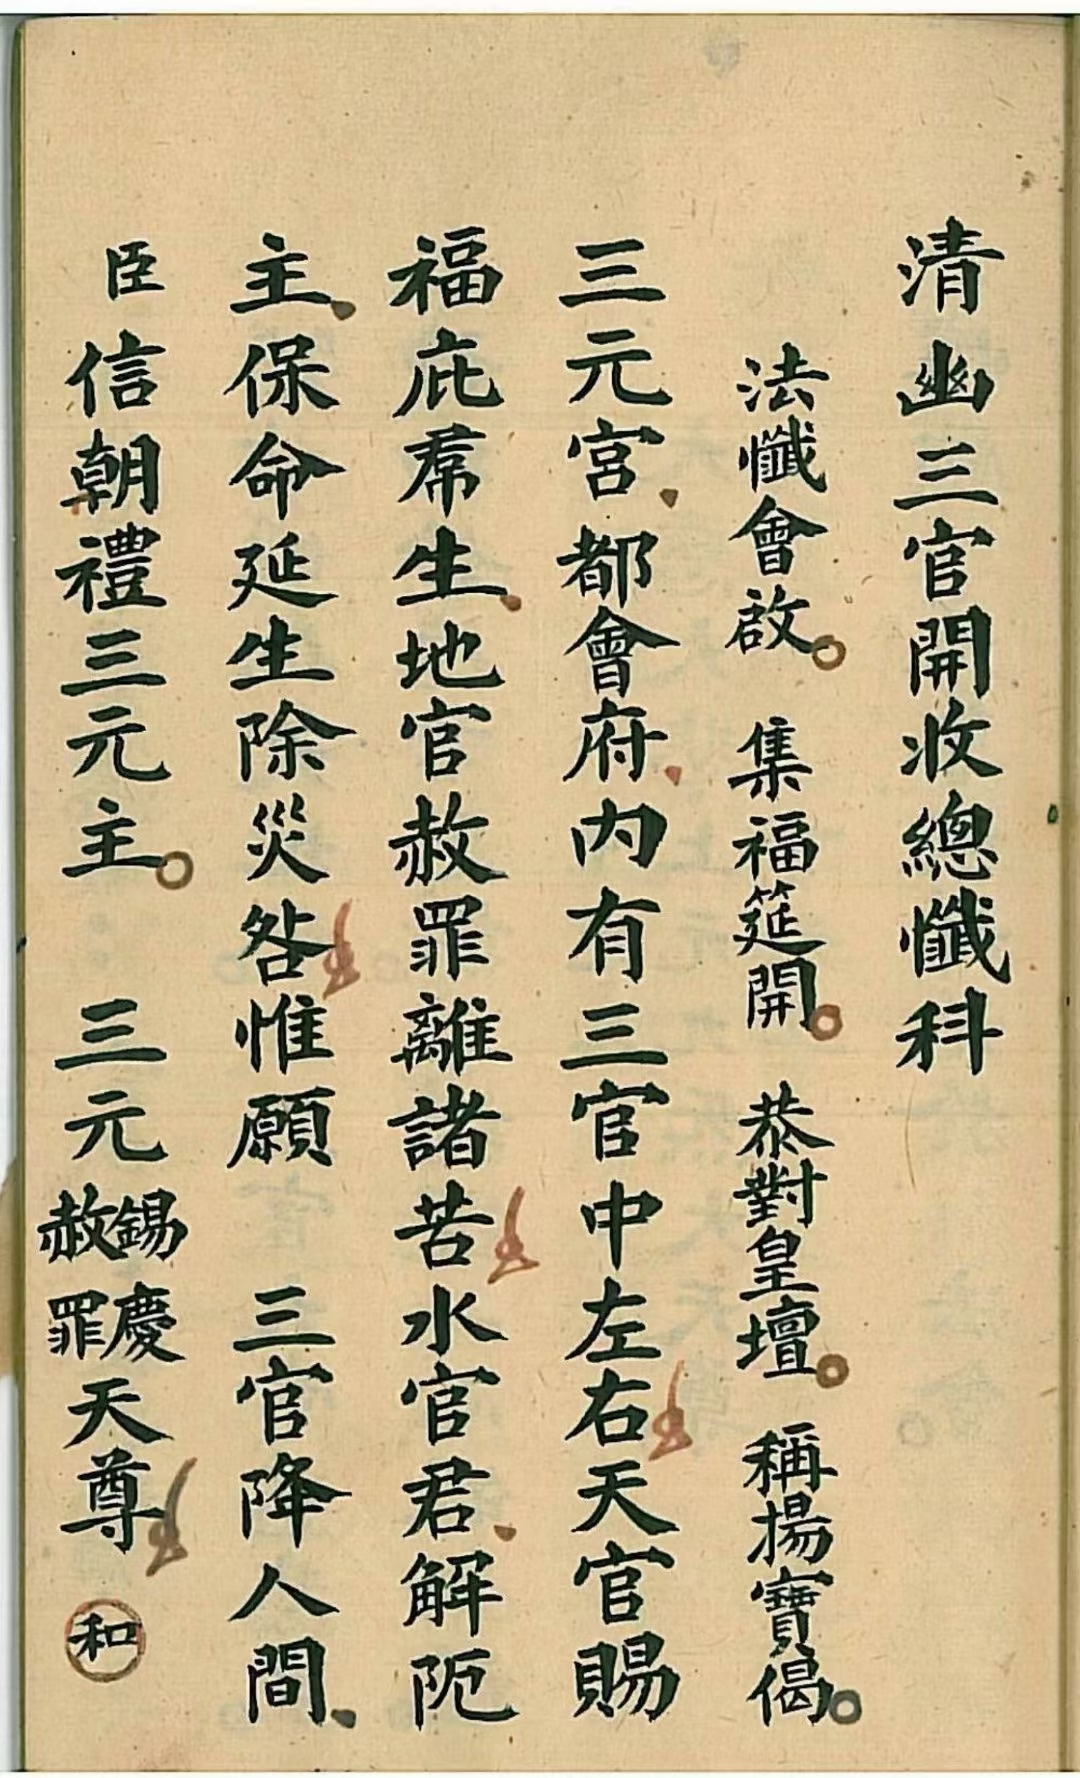 清幽三官開收總懺科
法懺會啟。集福筵開。恭對皇壇。稱揚寶偈。
三元宮都會府内有三官中左右天官賜
福庇羣生地官赦罪離諸苦水官君解阨
主保命延生除災咎惟願 三官降人間
臣信朝禮三元主。三元錫慶赦罪天尊 和